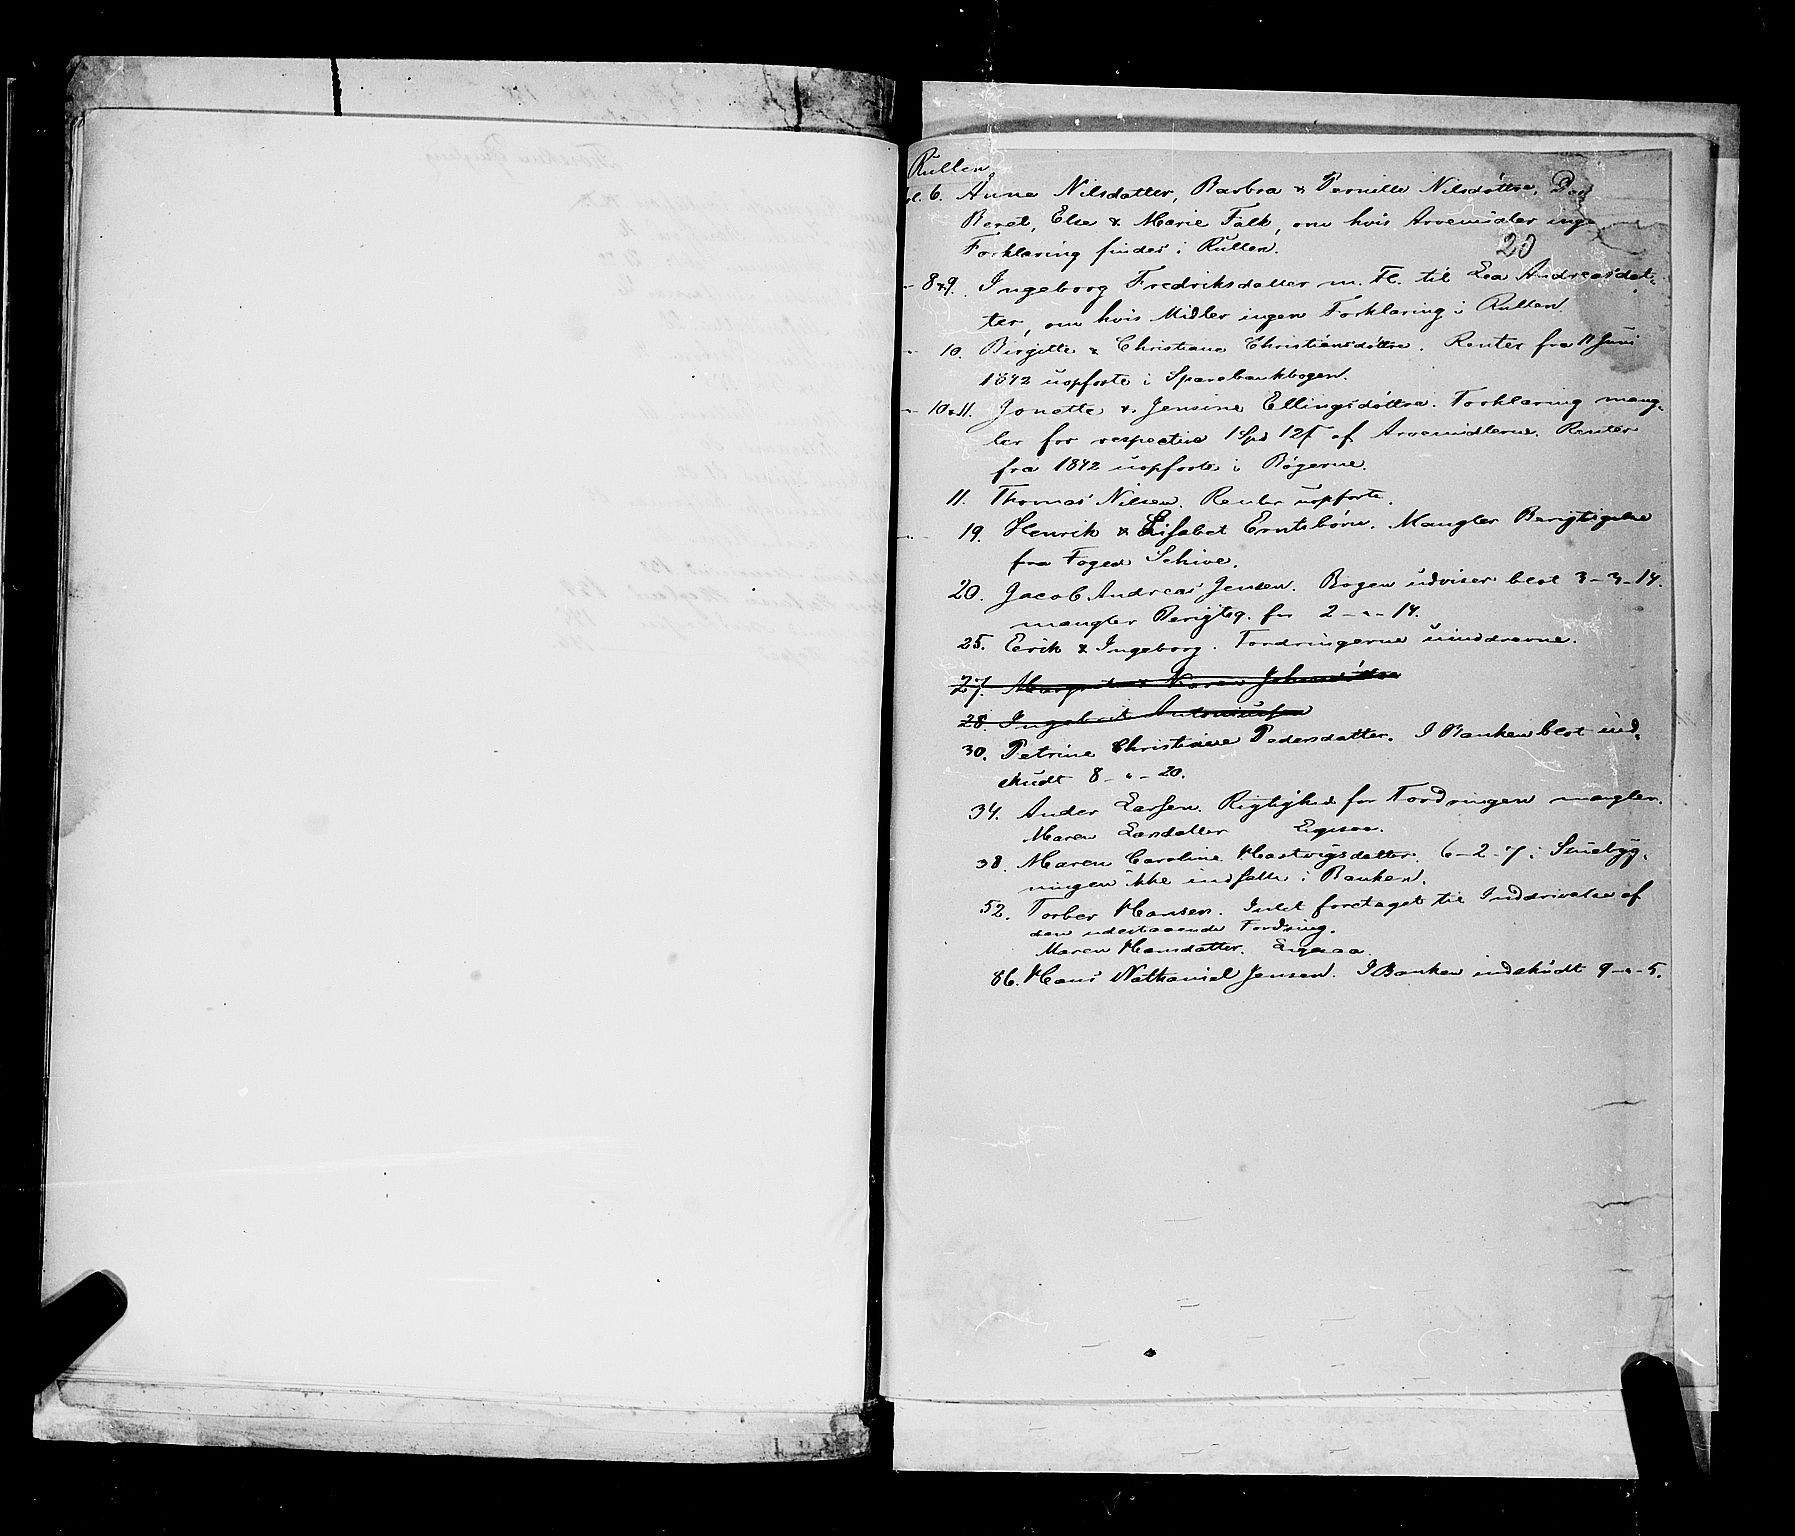 Rullen
6. Anne Nilsdatter, Barbra & Pernille Nilsdøttre,
Beret, Else & Marie Falk, om hvis Arvemidler inge
Forklaring findes i Rullen.
20
8&9. Ingeborg Fredriksdatter m. Fl. til Lea Andreasdat-
ter, om hvis Midler ingen Forklaring i Rullen.
10. Birgitte & Christiane Christiansdøttre. Renter fra 11 Juni
1842 uopførte i Sparebankbogen.
10&11. Jonette & Jensine Ellingsdøttre. Forklaring mang-
ler for respective 1 Spd 12 f af Arvemidlerne. Renter
fra 1842 uopførte i Bøgerne.
11. Thomas Nilsen. Renter uopførte.
19. Henrik & Lisabet Erntsbørn. Mangler Berigtigelse
fra Foged Schive.
20. Jacob Andreas Jensen. Bogen udviser blot 3-3-14.
mangler Berigtig. for 2-"-14.
25. Erik & Ingeborg. Fordringerne uinddrevne.
27. Margrethe & Karen Johnsdøttre
28. Ingebrit Antoniusen
30. Petrine Christiane Pedersdatter. I Banken blot ind-
skudt 8-"-20.
34. Ander Larsen. Rigtighed for Fordringen mangler.
Maren Larsdatter Ligesaa.
38. Maren Caroline Hartvigsdatter. 6-2-7 i
ningen ikke indsatte i Banken.
52. Torber Hansen. Intet foretaget til Inddrivelse af
den udestaaende Fordring.
Maren Hansdatter. Ligesaa.
86. Hans Nathaniel Jensen. I Banken indskudt 9-"-5.